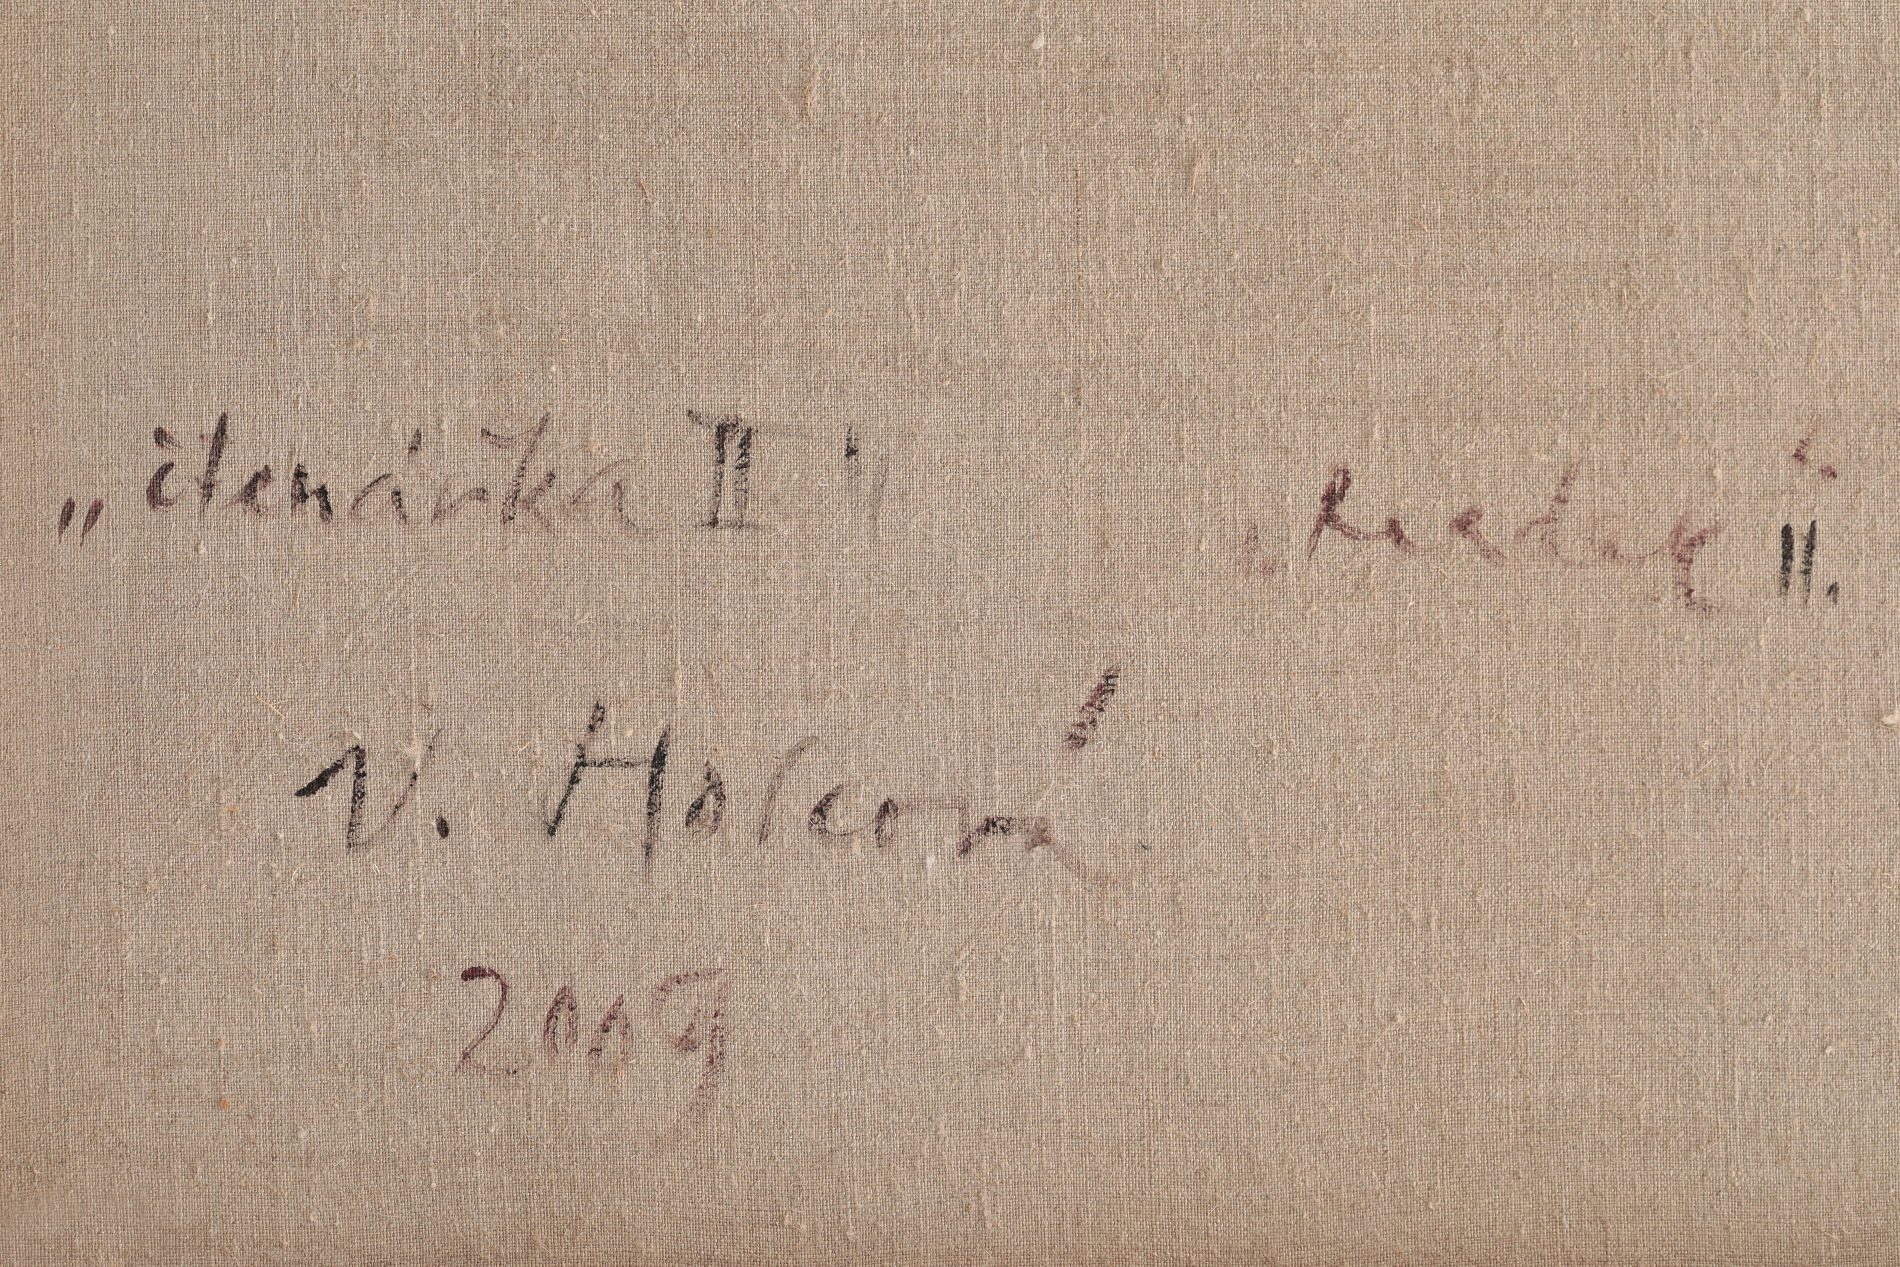 „čtenářka II" „Reader" II.
V. Holcová
2009